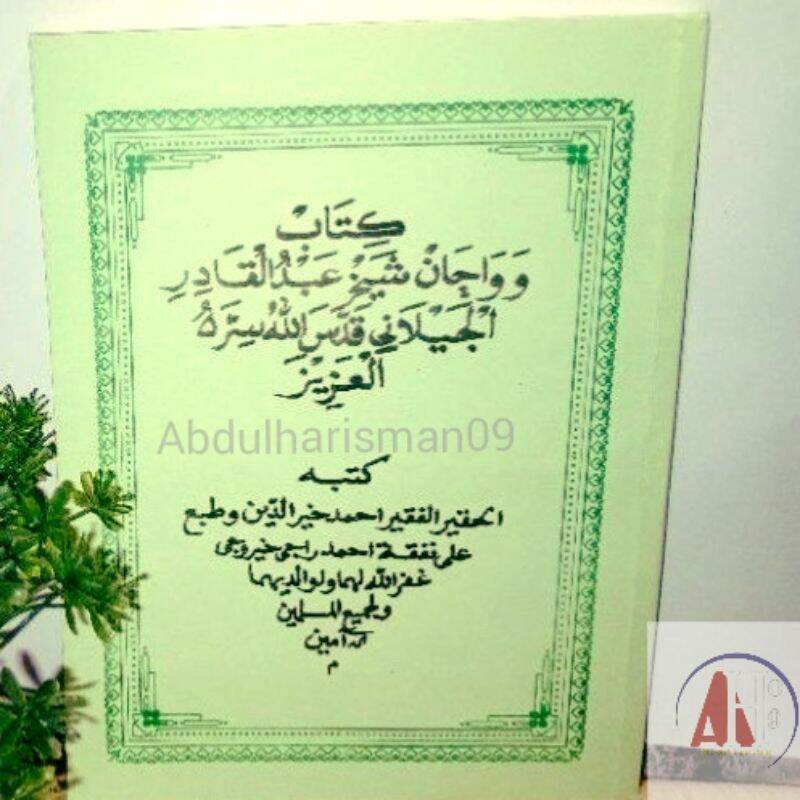 كِتَابْ
وَوَاچَانْ شَيْخْ عَبْدُالْقَادِرِ
الْجَيْلَانِي قَدَّسَ اللهُ سِرَّهُ
الْعَزِيْزَ
Abdulharisman09
كتبه
الحقير الفقير احمد خير الدين وطبع
على نفقة احمد راجى خيروجى
غفر الله لهما ولوالديهما
ولجميع المسلمين
آمين
م